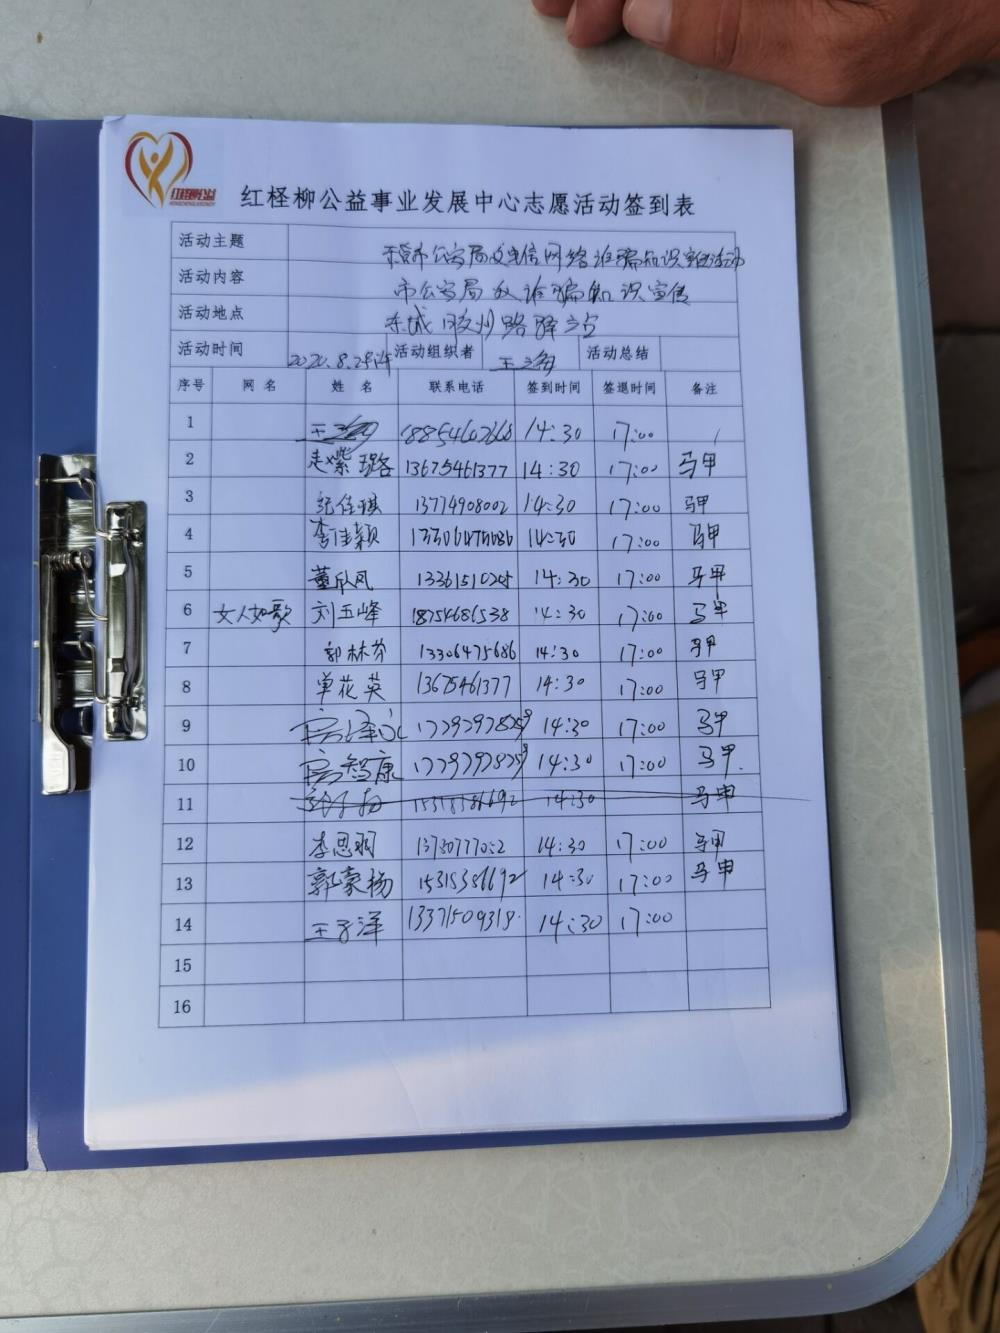 红柽柳公益
红柽柳公益事业发展中心志愿活动签到表
活动主题 市公安局 电信网络诈骗知识宣传活动
活动内容 市公安局反诈骗知识宣传
活动地点 东城胶州路驿站
活动时间 2020.8.25 活动组织者 王 活动总结
序号 网名 姓名 联系电话 签到时间 签退时间 备注
1 王 14:30 17:00
2 赵紫璐 13675461377 14:30 17:00 马甲
3 纪佳琪 13774908002 14:30 17:00 马甲
4 李佳颖 14:30 17:00 马甲
5 董欣凤 14:30 17:00 马甲
6 女人如歌 刘玉峰 18754681538 14:30 17:00 马甲
7 郭林芬 13306475686 14:30 17:00 马甲
8 单花英 13675461377 14:30 17:00 马甲
9 14:30 17:00 马甲
10 智康 14:30 17:00 马甲
11 14:30 马甲
12 李思羽 14:30 17:00 马甲
13 郭豪杨 14:30 17:00 马甲
14 王子洋 13371509318 14:30 17:00
15
16